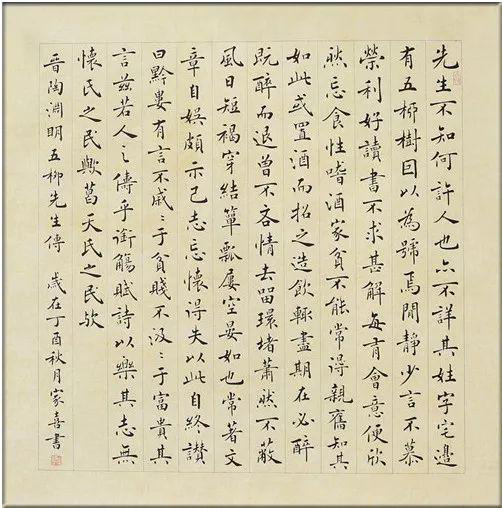 先生不知何許人也亦不詳其姓字宅邊
有五柳樹因以為號焉閒靜少言不慕
榮利好讀書不求甚解每有會意便欣
然忘食性嗜酒家貧不能常得親舊知其
如此或置酒而招之造飲輒盡期在必醉
既醉而退曾不吝情去留環堵蕭然不蔽
風日短褐穿結簞瓢屢空晏如也常著文
章自娛頗示己志忘懷得失以此自終讚
曰黔婁有言不戚〻于貧賤不汲〻于富貴其
言茲若人之儔乎銜觴賦詩以樂其志無
懷氏之民歟葛天氏之民欤
晉陶淵明五柳先生傳 歲在丁酉秋月家喜書